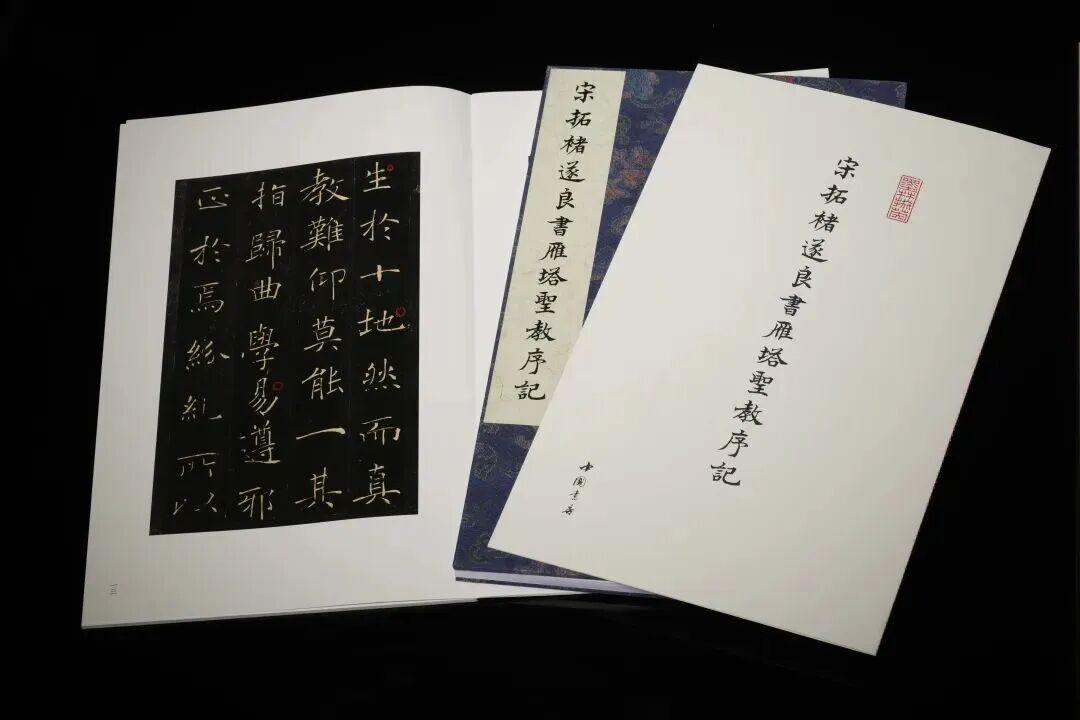 生於十地然而真
教難仰莫能一其
指歸曲學易遵邪
正於焉紛糺所以
一三
宋拓褚遂良書雁塔聖教序記
宋拓褚遂良書雁塔聖教序記
中國書店